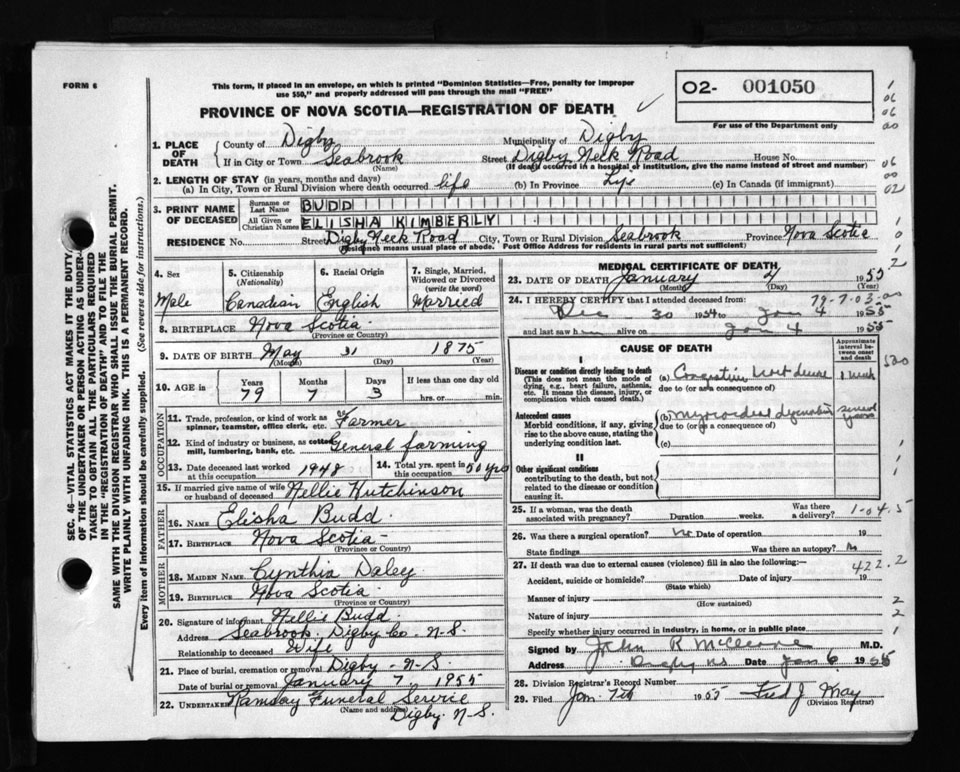 FORM 6
This form, if placed in an envelope, on which is printed "Dominion Statistics—Free, penalty for improper
use $50," and properly addressed will pass through the mail "FREE"
PROVINCE OF NOVA SCOTIA—REGISTRATION OF DEATH
O2- 001050
For use of the Department only
1. PLACE OF DEATH
County of Digby Municipality of Digby
If in City or Town Seabrook Street Digby Neck Road House No.
(Name) (If death occurred in a hospital or institution, give the name instead of street and number)
2. LENGTH OF STAY (in years, months and days)
(a) In City, Town or Rural Division where death occurred life (b) In Province Life (c) In Canada (if immigrant)
3. PRINT NAME OF DECEASED
Surname or Last Name BUDD
All Given or Christian Names ELISHA KIMBERLY
RESIDENCE No. Street Digby Neck Road City, Town or Rural Division Seabrook Province Nova Scotia
(Residence means usual place of abode. Post Office Address for residents in rural parts not sufficient)
4. Sex
Male
5. Citizenship
(Nationality)
Canadian
6. Racial Origin
English
7. Single, Married,
Widowed or Divorced
(write the word)
Married
8. BIRTHPLACE Nova Scotia
(Province or Country)
9. DATE OF BIRTH May 31 1875
(Month) (Day) (Year)
10. AGE in
Years Months Days If less than one day old
79 7 3 hrs. or min.
OCCUPATION
11. Trade, profession, or kind of work as
spinner, teamster, office clerk, etc. Farmer
12. Kind of industry or business, as cotton
mill, lumbering, bank, etc. General farming
13. Date deceased last worked
at this occupation 1948
14. Total yrs. spent in
this occupation 50 yrs
15. If married give name of wife
or husband of deceased Nellie Hutchinson
FATHER
16. NAME Elisha Budd
17. BIRTHPLACE Nova Scotia
(Province or Country)
MOTHER
18. MAIDEN NAME Cynthia Daley
19. BIRTHPLACE Nova Scotia
(Province or Country)
20. Signature of informant Nellie Budd
Address Seabrook, Digby Co. N-S.
Relationship to deceased Wife
21. Place of burial, cremation or removal Digby - N-S.
Date of burial or removal January 7 1955
22. UNDERTAKER Ramsay Funeral Service
(Name and address) Digby. N-S.
MEDICAL CERTIFICATE OF DEATH
23. DATE OF DEATH January 1955
(Month) (Day)
24. I HEREBY CERTIFY that I attended deceased from: 79-7-03
Dec 30 1954 to Jan 4 1955
and last saw h alive on Jan 4 1955
CAUSE OF DEATH
Approximate interval between onset and death
I
Disease or condition directly leading to death
(This does not mean the mode of
dying, e.g., heart failure, asthenia,
etc. It means the disease, injury, or
complication which caused death.)
(a) Congestive heart disease 1 week
due to (or as a consequence of)
Antecedent causes
Morbid conditions, if any, giving
rise to the above cause, stating the
underlying condition last.
(b) myocardial degeneration several years
due to (or as a consequence of)
(c)
II
Other significant conditions
contributing to the death, but not
related to the disease or condition
causing it.
25. If a woman, was the death
associated with pregnancy? Duration weeks. Was there
a delivery? 1-04.5
26. Was there a surgical operation? no Date of operation 19
State findings Was there an autopsy? no
27. If death was due to external causes (violence) fill in also the following:— 422.2
Accident, suicide or homicide? Date of injury 19
(State which)
Manner of injury
(How sustained)
Nature of injury
Specify whether injury occurred in industry, in home, or in public place
Signed by John R M.D.
Address Digby NS Date Jan 6 1955
28. Division Registrar's Record Number
29. Filed Jan. 7th 1955 Fred J May
(Division Registrar)
SEC. 46—VITAL STATISTICS ACT MAKES IT THE DUTY
OF THE UNDERTAKER OR PERSON ACTING AS UNDER-
TAKER TO OBTAIN ALL THE PARTICULARS REQUIRED
IN THE "REGISTRATION OF DEATH" AND TO FILE THE
SAME WITH THE DIVISION REGISTRAR WHO SHALL ISSUE THE BURIAL PERMIT.
WRITE PLAINLY WITH UNFADING INK. THIS IS A PERMANENT RECORD.
Every item of information should be carefully supplied. (See reverse side for instructions.)